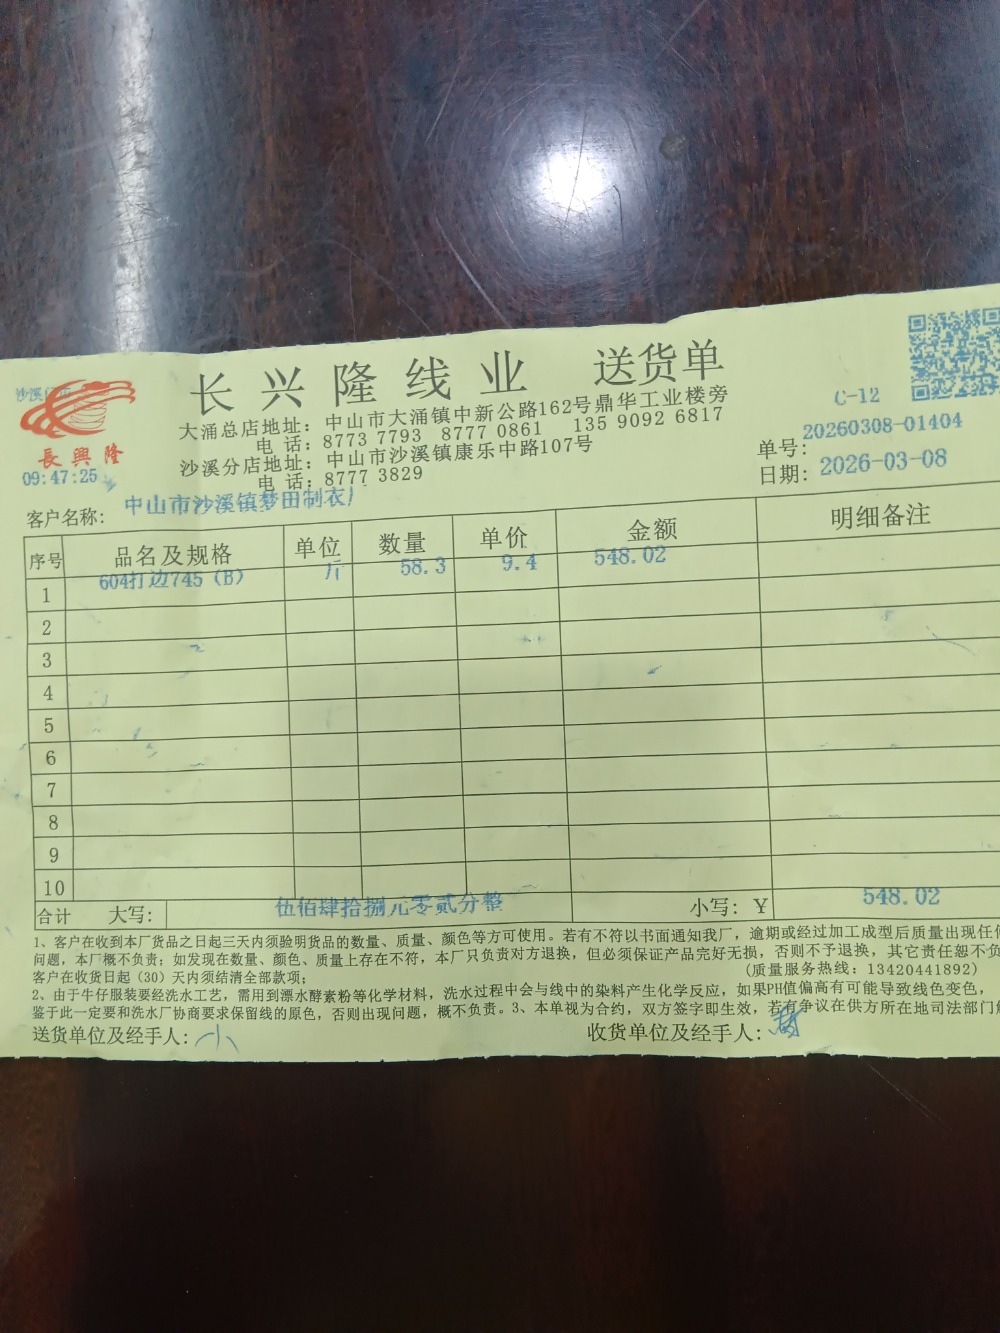 长兴隆线业 送货单
C-12
大涌总店地址：中山市大涌镇中新公路162号鼎华工业楼旁
电话：8773 7793 8777 0861 135 9092 6817
沙溪分店地址：中山市沙溪镇康乐中路107号
电话：8777 3829
長興隆
09:47:25
单号：20260308-01404
日期：2026-03-08
客户名称：中山市沙溪镇梦田制衣厂
序号 品名及规格 单位 数量 单价 金额 明细备注
1 604打边745（B） 斤 58.3 9.4 548.02
2
3
4
5
6
7
8
9
10
合计 大写：伍佰肆拾捌元零贰分整 小写：￥ 548.02
1、客户在收到本厂货品之日起三天内须验明货品的数量、质量、颜色等方可使用。若有不符以书面通知我厂，逾期或经过加工成型后质量出现任何
问题，本厂概不负责；如发现在数量、颜色、质量上存在不符，本厂只负责对方退换，但必须保证产品完好无损，否则不予退换，其它责任恕不负
客户在收货日起（30）天内须结清全部款项； （质量服务热线：13420441892）
2、由于牛仔服装要经洗水工艺，需用到漂水酵素粉等化学材料，洗水过程中会与线中的染料产生化学反应，如果PH值偏高有可能导致线色变色，
鉴于此一定要和洗水厂协商要求保留线的原色，否则出现问题，概不负责。3、本单视为合约，双方签字即生效，若有争议在供方所在地司法部门
送货单位及经手人：小 收货单位及经手人：